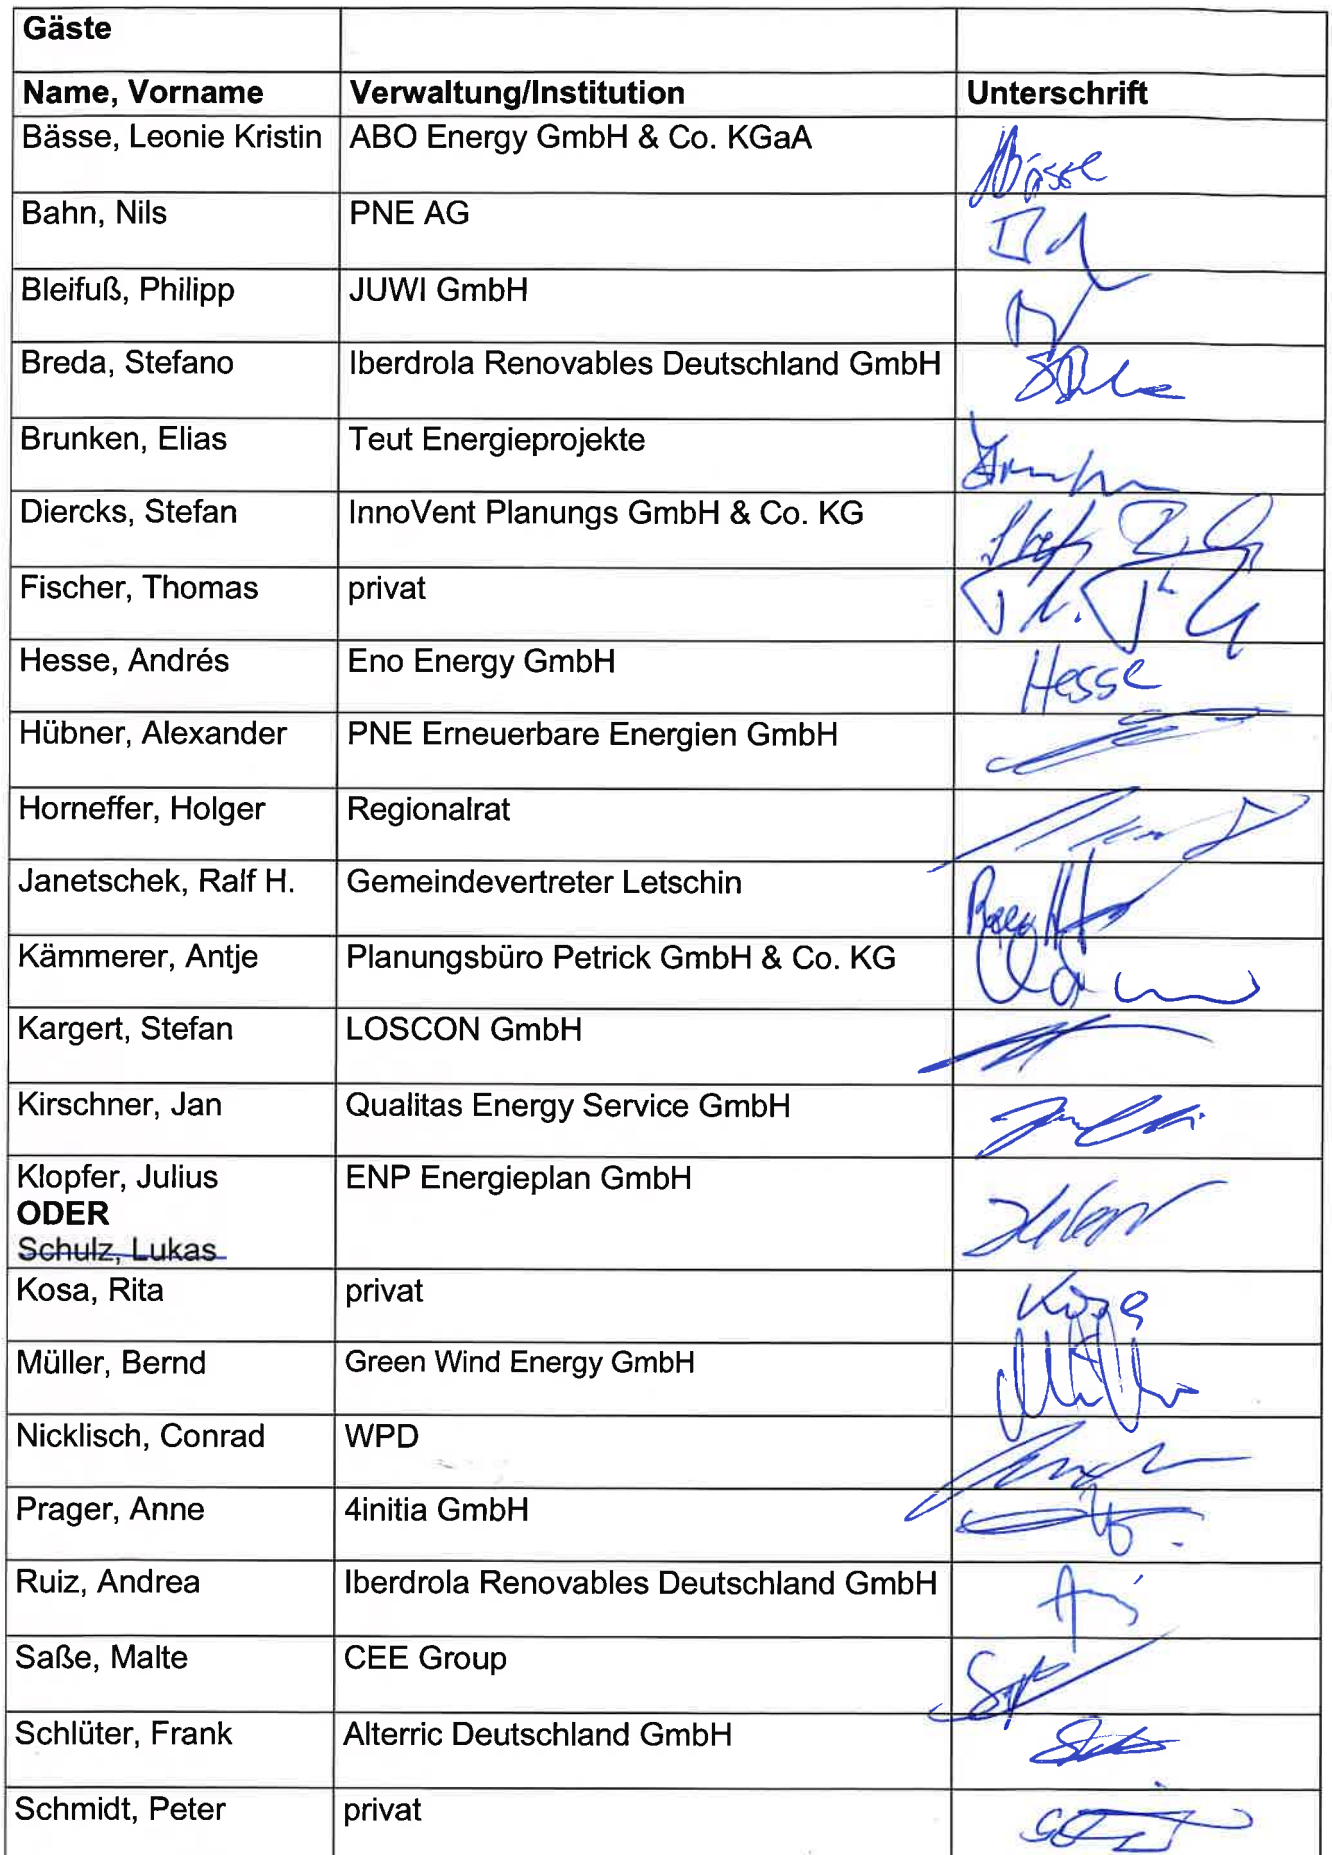 Gäste
Name, Vorname Verwaltung/Institution Unterschrift
Bässe, Leonie Kristin ABO Energy GmbH & Co. KGaA Bässe
Bahn, Nils PNE AG
Bleifuß, Philipp JUWI GmbH
Breda, Stefano Iberdrola Renovables Deutschland GmbH
Brunken, Elias Teut Energieprojekte
Diercks, Stefan InnoVent Planungs GmbH & Co. KG
Fischer, Thomas privat
Hesse, Andrés Eno Energy GmbH Hesse
Hübner, Alexander PNE Erneuerbare Energien GmbH
Horneffer, Holger Regionalrat
Janetschek, Ralf H. Gemeindevertreter Letschin
Kämmerer, Antje Planungsbüro Petrick GmbH & Co. KG
Kargert, Stefan LOSCON GmbH
Kirschner, Jan Qualitas Energy Service GmbH
Klopfer, Julius ENP Energieplan GmbH
ODER
Schulz, Lukas
Kosa, Rita privat Kosa
Müller, Bernd Green Wind Energy GmbH
Nicklisch, Conrad WPD
Prager, Anne 4initia GmbH
Ruiz, Andrea Iberdrola Renovables Deutschland GmbH
Saße, Malte CEE Group
Schlüter, Frank Alterric Deutschland GmbH
Schmidt, Peter privat